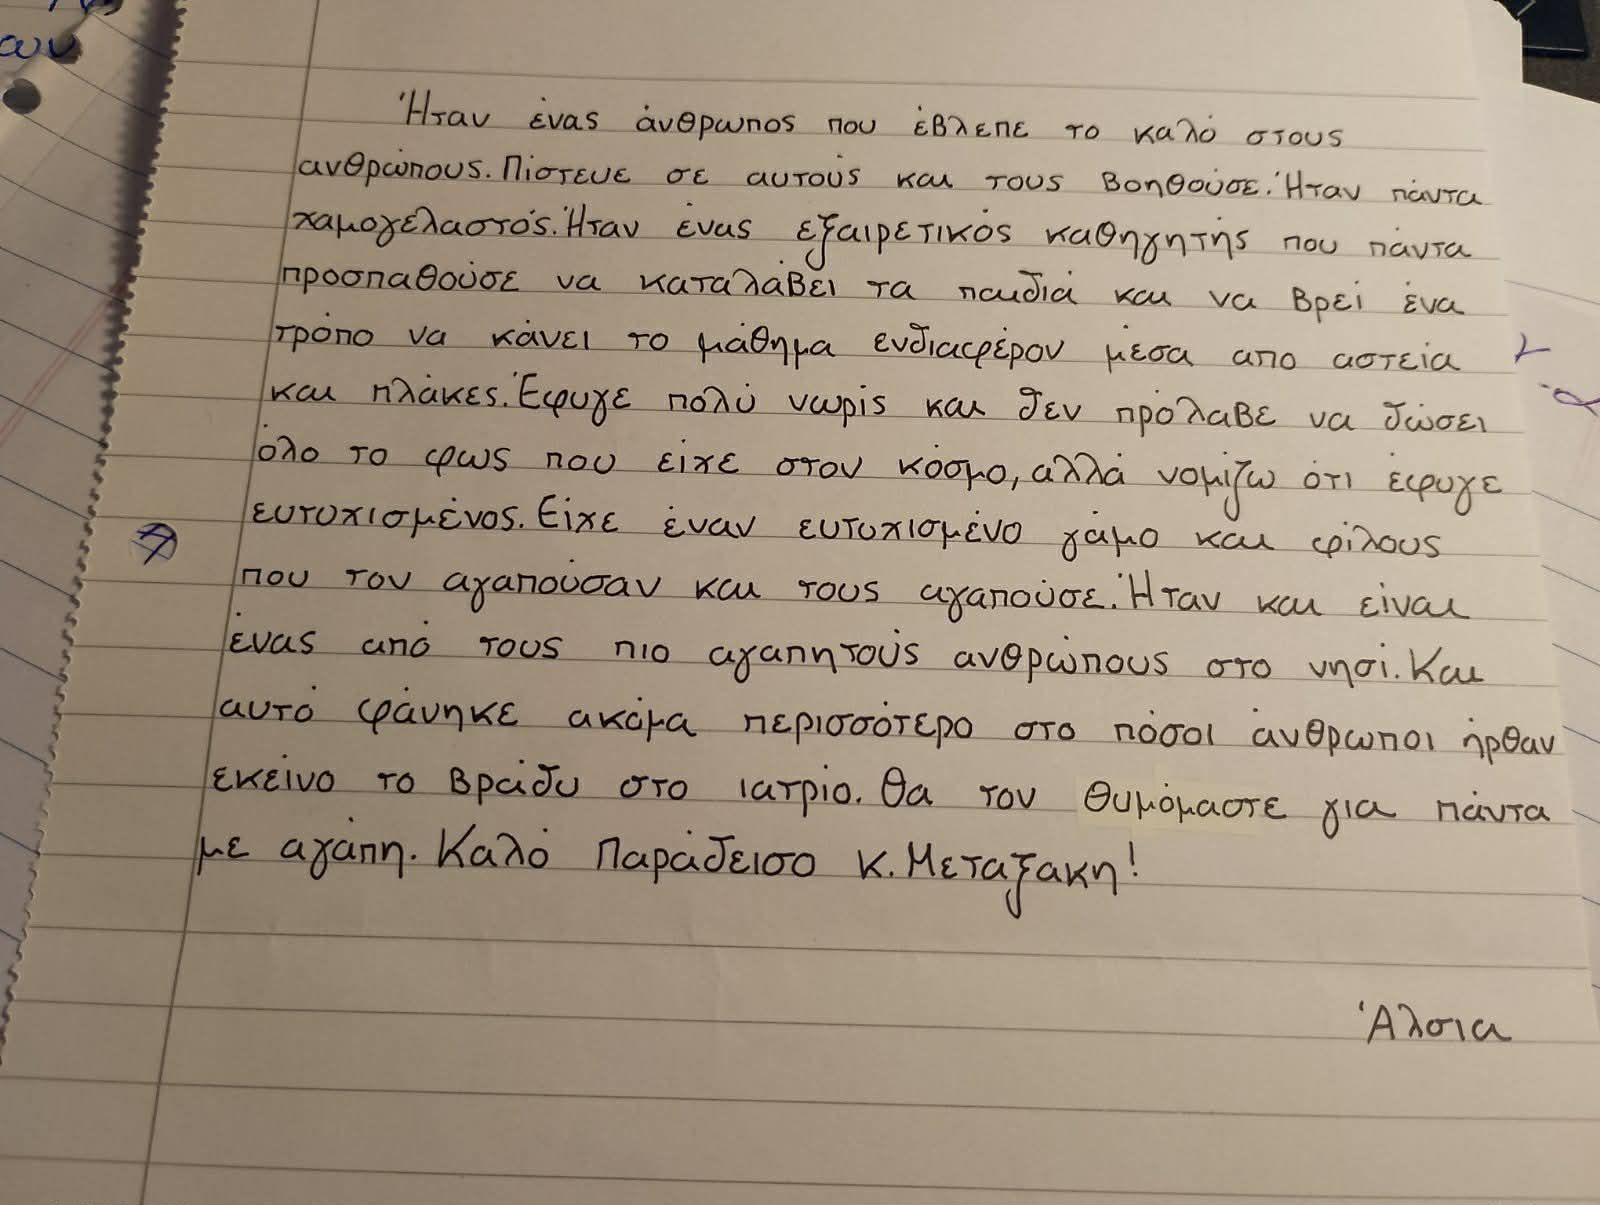 ων
Ήταν ένας άνθρωπος που έβλεπε το καλό στους
ανθρώπους. Πίστευε σε αυτούς και τους βοηθούσε. Ήταν πάντα
χαμογελαστός. Ήταν ένας εξαιρετικός καθηγητής που πάντα
προσπαθούσε να καταλάβει τα παιδιά και να βρεί ένα
τρόπο να κάνει το μάθημα ενδιαφέρον μέσα απο αστεία
και πλάκες. Έφυγε πολύ νωρίς και δεν πρόλαβε να δώσει
όλο το φως που είχε στον κόσμο, αλλά νομίζω ότι έφυγε
ευτυχισμένος. Είχε έναν ευτυχισμένο γάμο και φίλους
που τον αγαπούσαν και τους αγαπούσε. Ήταν και είναι
ένας από τους πιο αγαπητούς ανθρώπους στο νησί. Και
αυτό φάνηκε ακόμα περισσότερο στο πόσοι άνθρωποι ήρθαν
εκείνο το βράδυ στο ιατρίο. Θα τον θυμόμαστε για πάντα
με αγάπη. Καλό Παράδεισο κ. Μεταξακη!
Άλσια